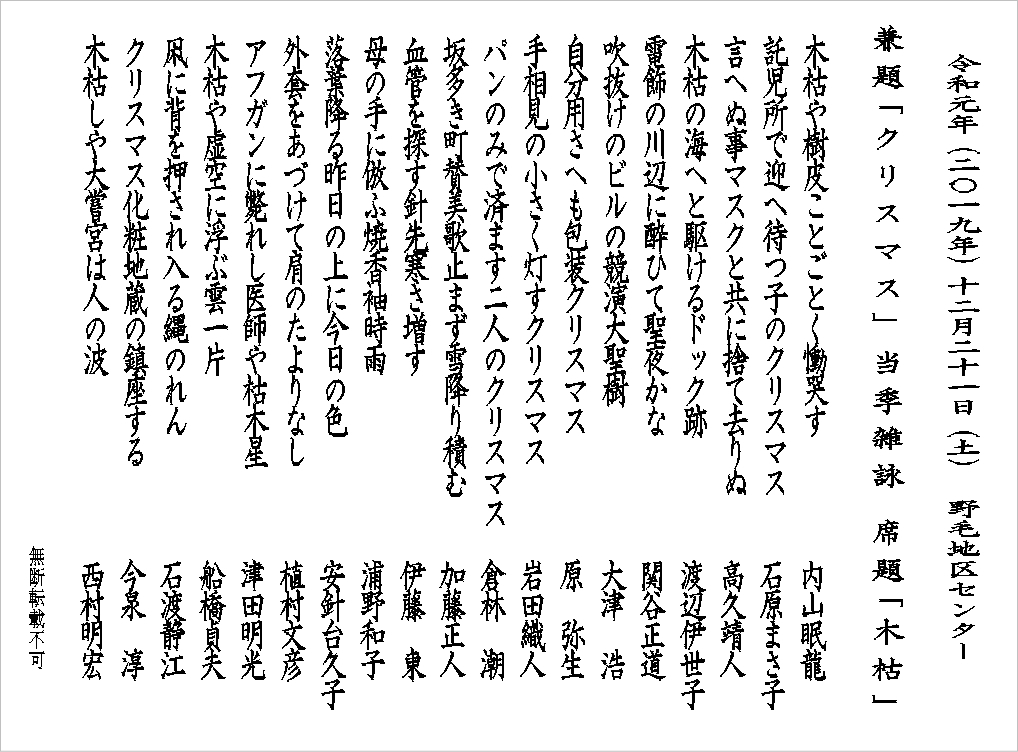 令和元年(二〇一九年)十二月二十一日(土) 野毛地区センター
兼題「クリスマス」 当季雑詠 席題「木枯」
木枯や樹皮ことごとく慟哭す 内山眠龍
託児所で迎へ待つ子のクリスマス 石原まさ子
言へぬ事マスクと共に捨て去りぬ 高久靖人
木枯の海へと駆けるドック跡 渡辺伊世子
電飾の川辺に酔ひて聖夜かな 関谷正道
吹抜けのビルの競演大聖樹 大津 浩
自分用さへも包装クリスマス 原 弥生
手相見の小さく灯すクリスマス 岩田織人
パンのみで済ます二人のクリスマス 倉林 潮
坂多き町賛美歌止まず雪降り積む 加藤正人
血管を探す針先寒さ増す 伊藤 東
母の手に倣ふ焼香袖時雨 浦野和子
落葉降る昨日の上に今日の色 安針台久子
外套をあづけて肩のたよりなし 植村文彦
アフガンに斃れし医師や枯木星 津田明光
木枯や虚空に浮ぶ雲一片 船橋貞夫
凩に背を押され入る縄のれん 石渡静江
クリスマス化粧地蔵の鎮座する 今泉 淳
木枯しや大嘗宮は人の波 西村明宏
無断転載不可